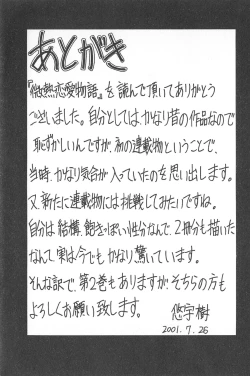 あとがき
『微熱恋愛物語』を読んで頂いてありがとう
ございました。自分としてはかなり昔の作品なので
恥ずかしいんですが、初の連載物ということで、
当時、かなり気合が入っていたのを思い出します。
又、新たに連載物には挑戦してみたいですね。
自分は結構、飽きっぽい性分なんで、2冊分も描いた
なんて、実は今でもかなり驚いています。
そんな訳で、第2巻もありますが、そちらの方も
よろしくお願い致します。
悠宇樹
2001.7.26